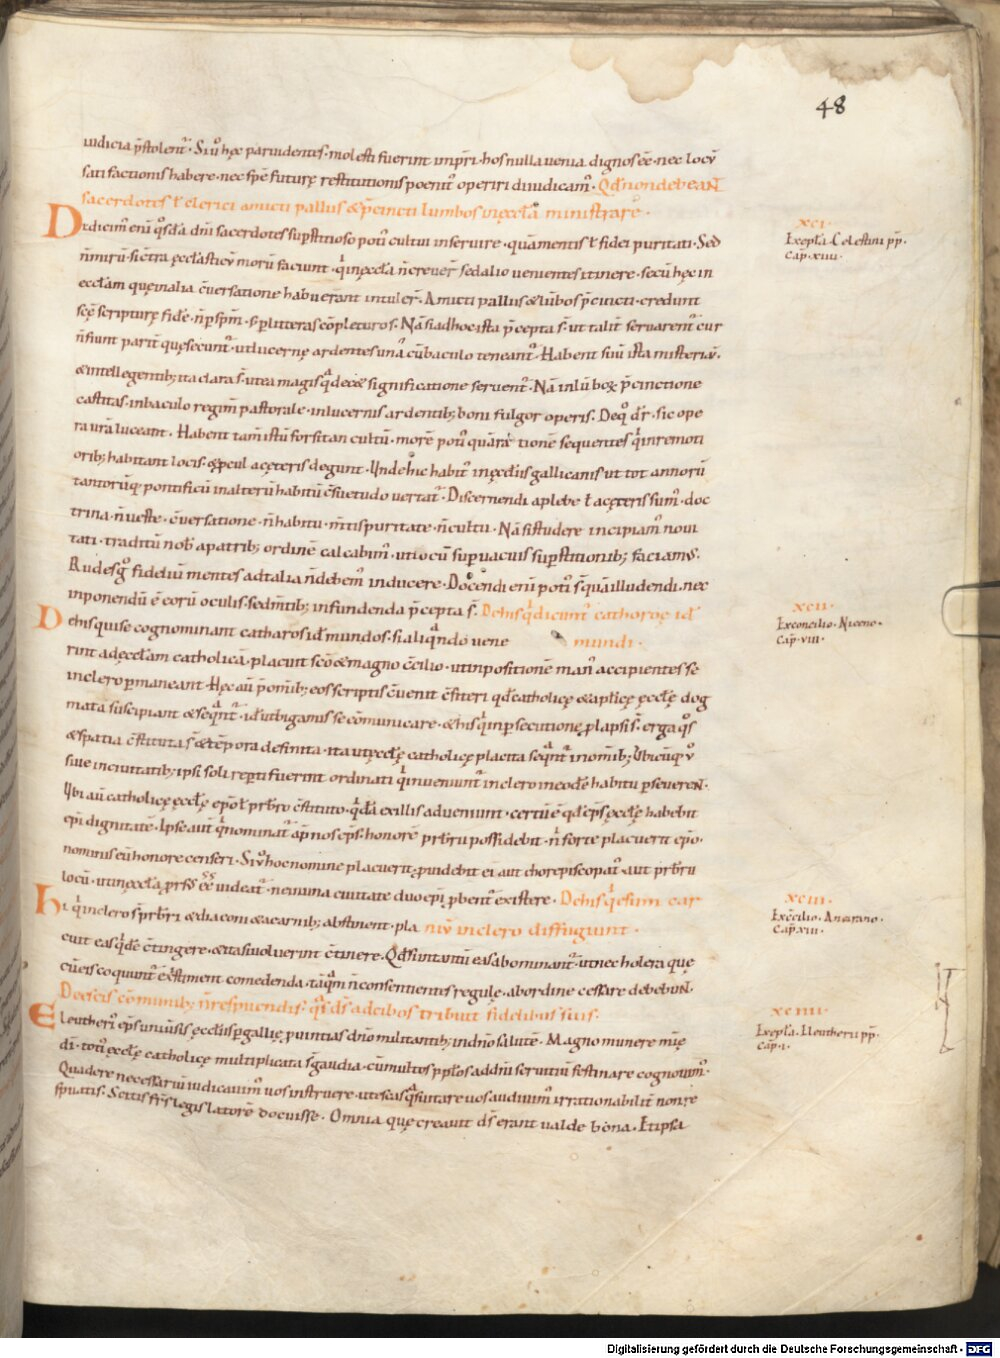 48
iudicia p̄stolent᷑. Siu᷎ hęc paruidentes. molesti fuerint inp̄ri. hos nulla uenia dignos eē. nec locū
satisfactionis habere. nec spē futurę restitutionis poenit᷑ operiri diiudicam᷒. Qd̄ non debeant
sacerdotes ł clerici amicti palliis & p̄cincti lumbos in ęccła ministrare.
Didicim᷒ eni q̊sdā dn̄i sacerdotes sup̄stitioso poti᷒ cultui inseruire. quā mentis ł fidei puritati. Sed
xci.
Ex epła. Celestini pp.
cap. xiiii.
n̄ mirū. si ctra ęcclasticū morū faciunt. qͥ in ęccła n̄ creuer̄. sed alio uenientes itinere. secū hęc in
ecclam quę in alia cuersatione habuerant intuler̄. Amicti palliis & lūbos p̄cincti. credunt
scē scripturę fidē. n̄ p sp̄m. s; p litteras cōpleturos. Nā si ad hoc ista p̄cepta s̄. ut talit᷑ seruarent᷑. cur
n̄ fiunt parit᷑ quę secunt᷑. ut lucernę ardentes una cū baculo teneant᷑. Habent suū ista misteriū.
& intellegentib; ita clara s̄. ut ea magis qͣ decet significatione seruent᷑. Nā in lūbox p̄cinctione
castitas. in baculo regim̄ pastorale. in lucernis ardentib; boni fulgor operis. De q᷎ dr̄. sic ope
ra ūra luceant. Habent tam̄ istū forsitan cultū. morē poti᷒ quā rationē sequentes qͥ in remoti
orib; habitant locis. & pcul a cęteris degunt. Unde hic habit᷒ in ęccliis gallicanis ut tot annorū
tantorūq; pontificū in alterū habitū c̄suetudo uertat᷑. Discernendi a plebe ł a cęteris sum᷒. doc
trina. n̄ ueste. c̄uersatione. n̄ habitu. m̄tis puritate. n̄ cultu. Nā si studere incipiam᷒ noui
tati. traditū nob̄ a patrib; ordinē calcabim᷒. ut locū supuacuis sup̄stitionib; faciam᷒.
Rudes g̊ fideliū mentes ad talia n̄ debem᷒ inducere. Docendi eni poti᷒ s̄. quā illudendi. nec
inponendū ē eorū oculis. sed m̄tib; infundenda p̄cepta s̄. De his qͥ dicunt᷑ catharoe id ̄
mundi.
Dehis qui se cognominant catharos id ̄ mundos. si aliqͣndo uene
xcii.
Ex concilio. Niceno.
Cap. viii.
rint ad ęcclam catholicā. placuit scō & magno c̄cilio. ut inpositionē man᷒ accipientes se
in clero pmaneant. Hęc aū p̄ omib; eos scriptis c̄uenit c̄fiteri qd̄ catholicę & aplicę ęcclę dog
mata suscipiant & seqͣnt᷑. id ̄ ut bigamis se cōmunicare. & his qͥ in psecutionę plapsi s̄. erga q̊s
& spatia c̄stituta s̄ & tēpora definita. ita ut ęcclę catholicę placita seqͣnt᷑ in omib; Ubicūq; u᷎
siue in ciuitatib; ipsi soli repti fuerint ordinati qͥ inueniunt᷑ in clero in eodē habitu pseuerent.
Ubi aū catholicę ęcclę epō ł prbro c̄stituto. qͥdā ex illis adueniunt. certū ē qd̄ ep̄s ęcclę habebit
epi dignitatē. Ipse aut qͥ nominat᷑ ap̄ nos ep̄s. honorē prbrii possidebit. n̄ forte placuerit epō.
nominis eū honore censeri. Si u᷎ hoc nomine placuerit. puidebit ei aut chorepiscopat᷒ aut prbrii
locū. ut in ęccła prs᷒ eē uideat᷑. ne in una ciuitate duo epi pbent᷑ existere. De his qͥ esum car
niū in clero diffugiunt.
Hi qͥ in clero s̄ prbri & diaconi & a carnib; abstinent. pla
xciii.
Ex c̄cilio. Ancirano.
Cap. xiii.
cuit eas qͥdē c̄tingere. & ita si uoluerint c̄tinere. Qd̄ si in tantū eas abominant᷑. ut nec holera quę
cū eis coquunt᷑ ex̄stiment comedenda. tāqͣm n̄ consentientes regulę. ab ordine cessare debebunt.
De escis cōmunib; n̄ respuendis. q̊s ds̄ ad cibos tribuit fidelibus suis.
xciiii.
Ex epła. Eleutherii pp.
cap. i.
Eleutheri᷒ ep̄s uniuersis ęccliis p gallię puintias dn̄o militantib; in dn̄o salutē. Magno munere mię
di. toti᷒ ęcclę catholicę multiplicata s̄ gaudia. cū multos pp̄los ad dn̄i seruitiū festinare cognouim᷒.
Qua de re necessariū iudicauim᷒ uos instruere. ut escas qͣs uitare uos audiuim᷒ irrationabilit᷑ non re
spuatis. Scitis frs legislatorē docuisse. Omnia quę creauit ds̄ erant ualde bona. Et ipsa
Digitalisierung gefördert durch die Deutsche Forschungsgemeinschaft - DFG